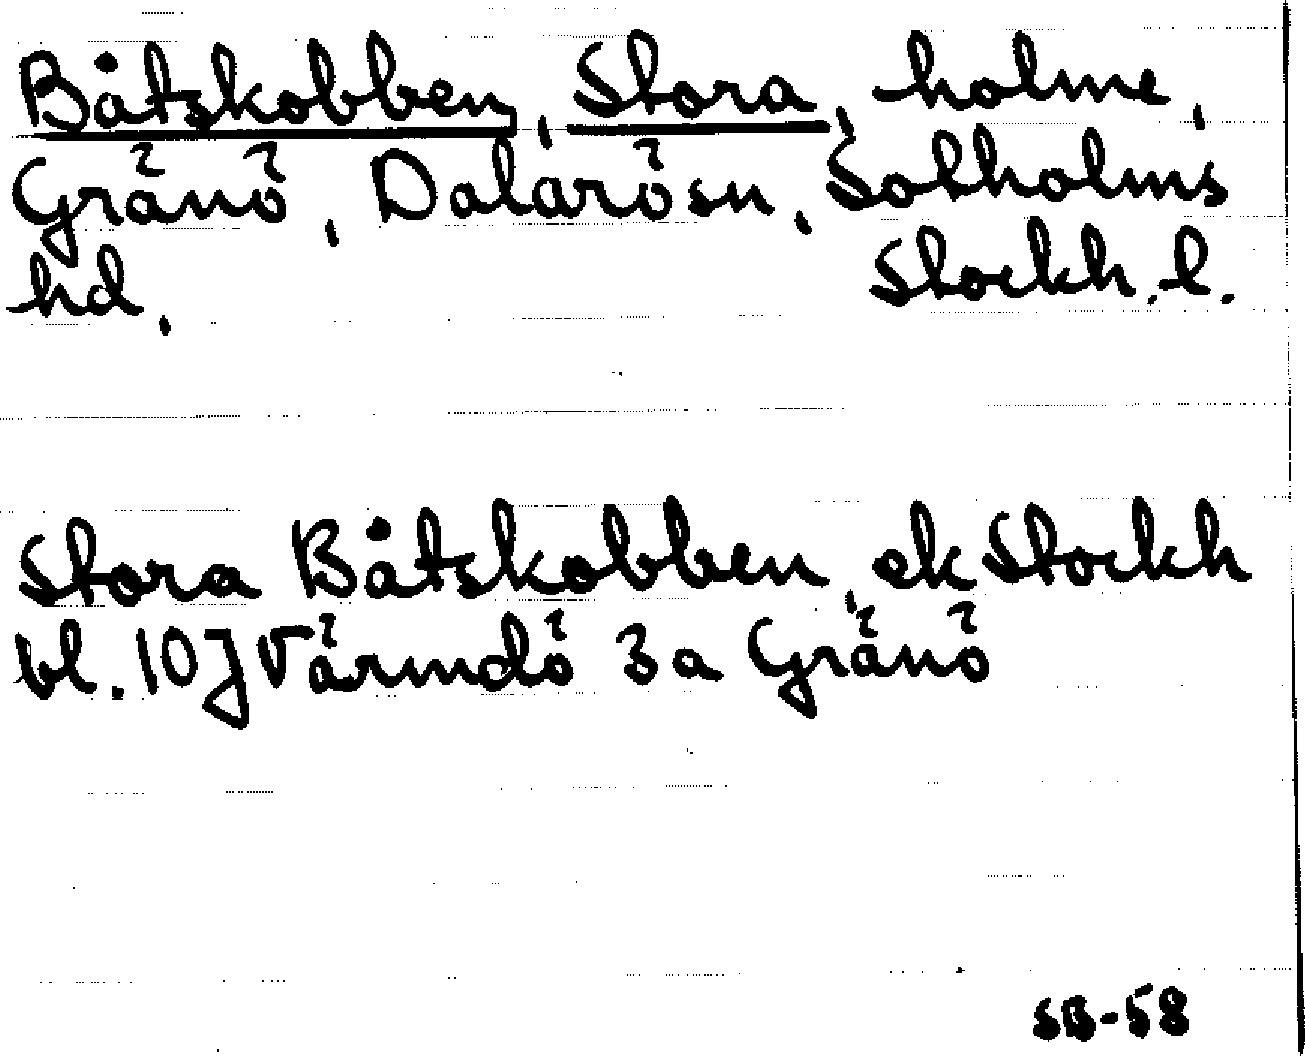 Båtskobben, Stora, holme,
Gränö, Dalarö sn, Sotholms
hd, Stockh. l.
Stora Båtskobben, ek Stockh
bl. 10J Värmdö 3a Gränö
SB-58